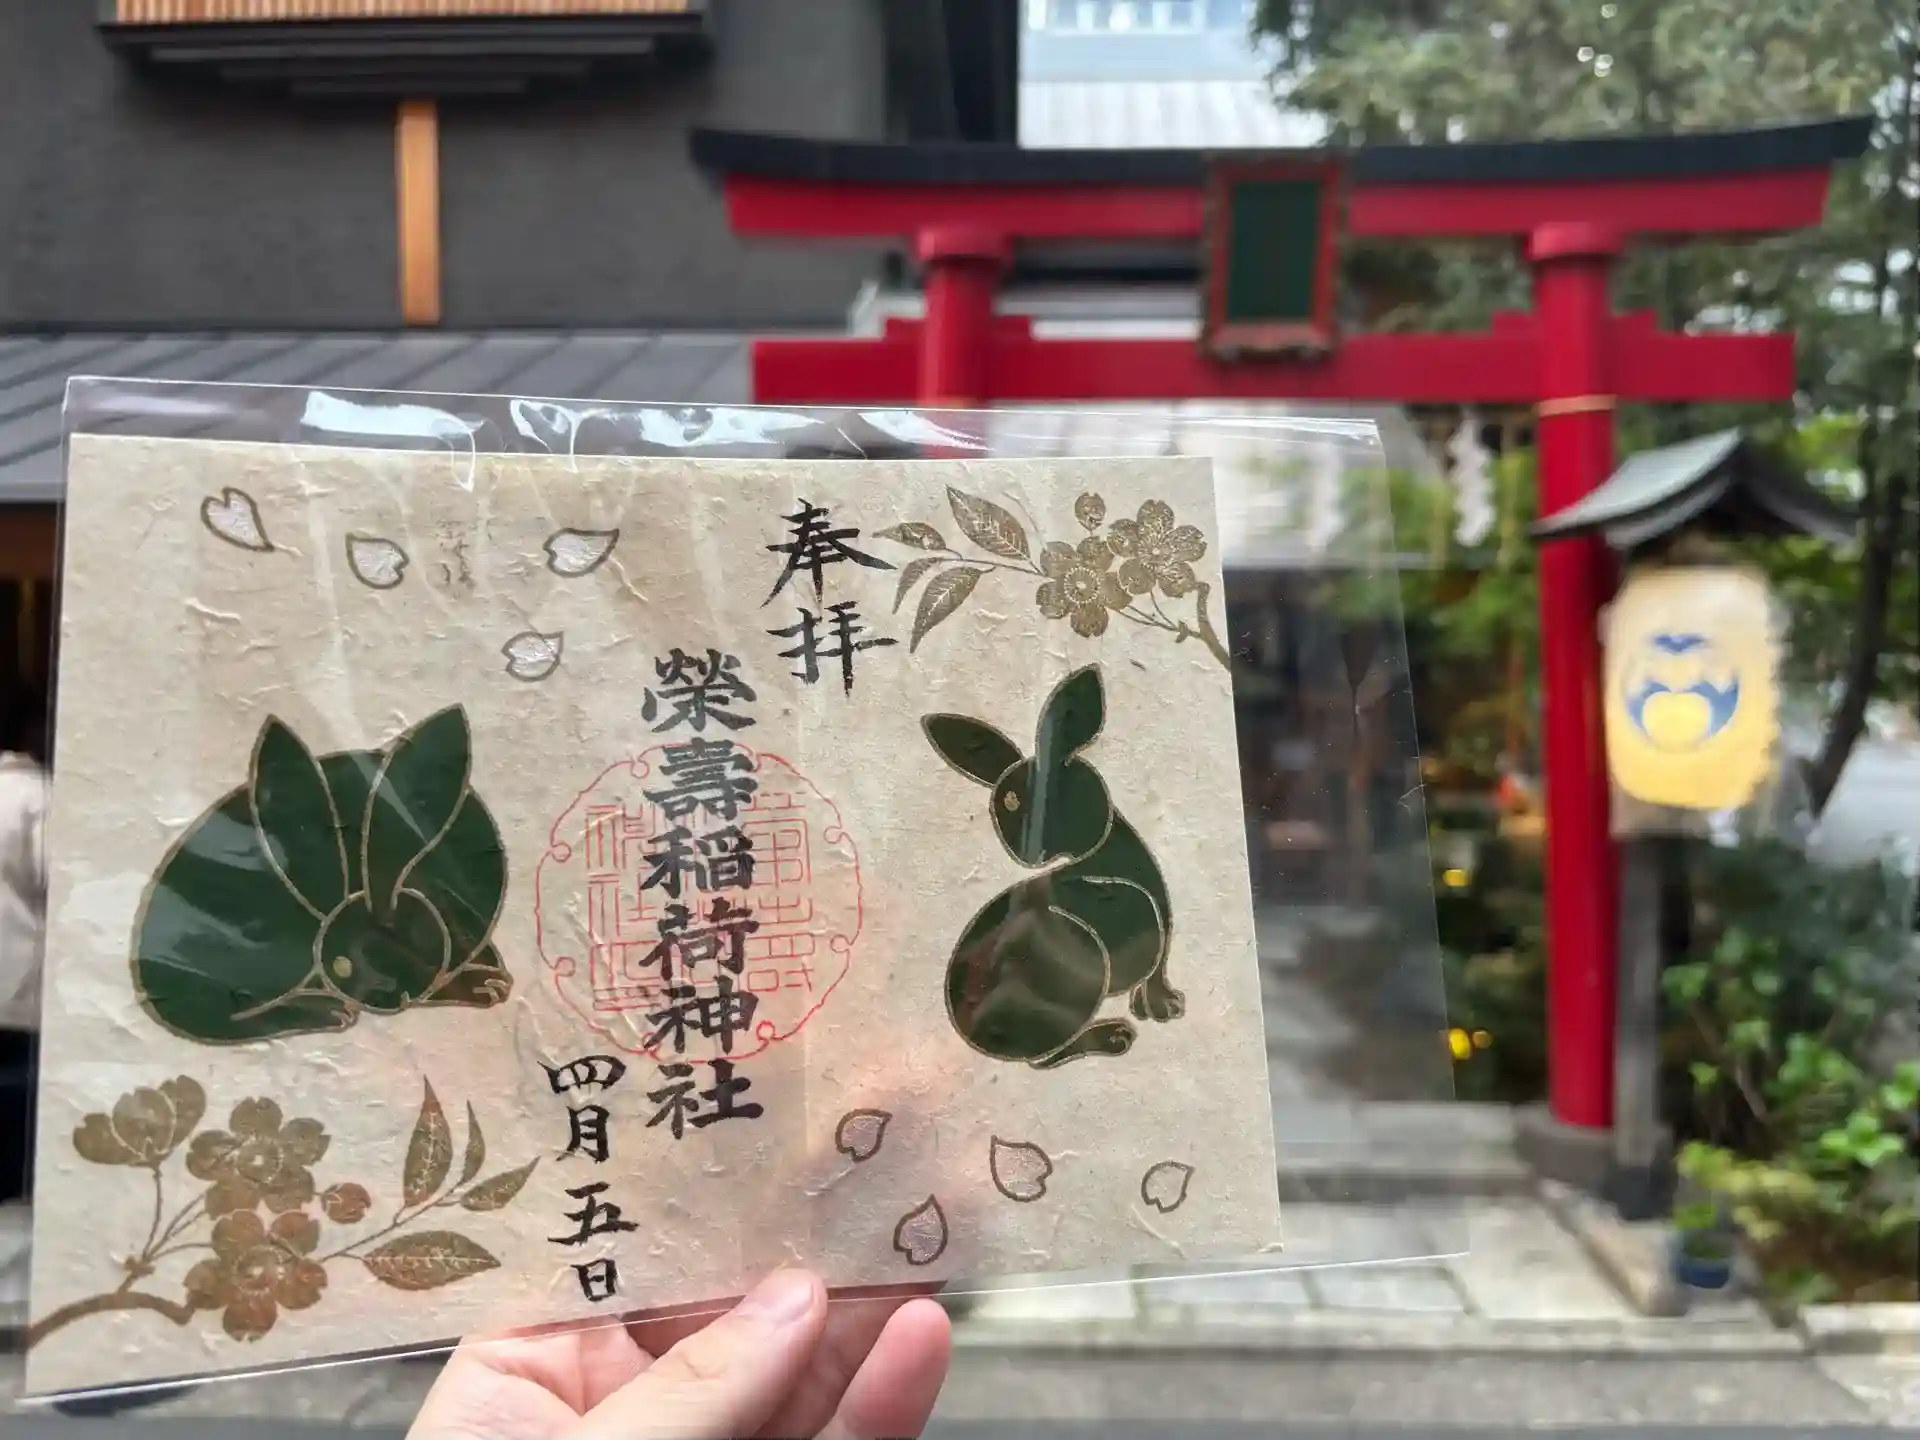 奉拝
榮壽稲荷神社
四月五日